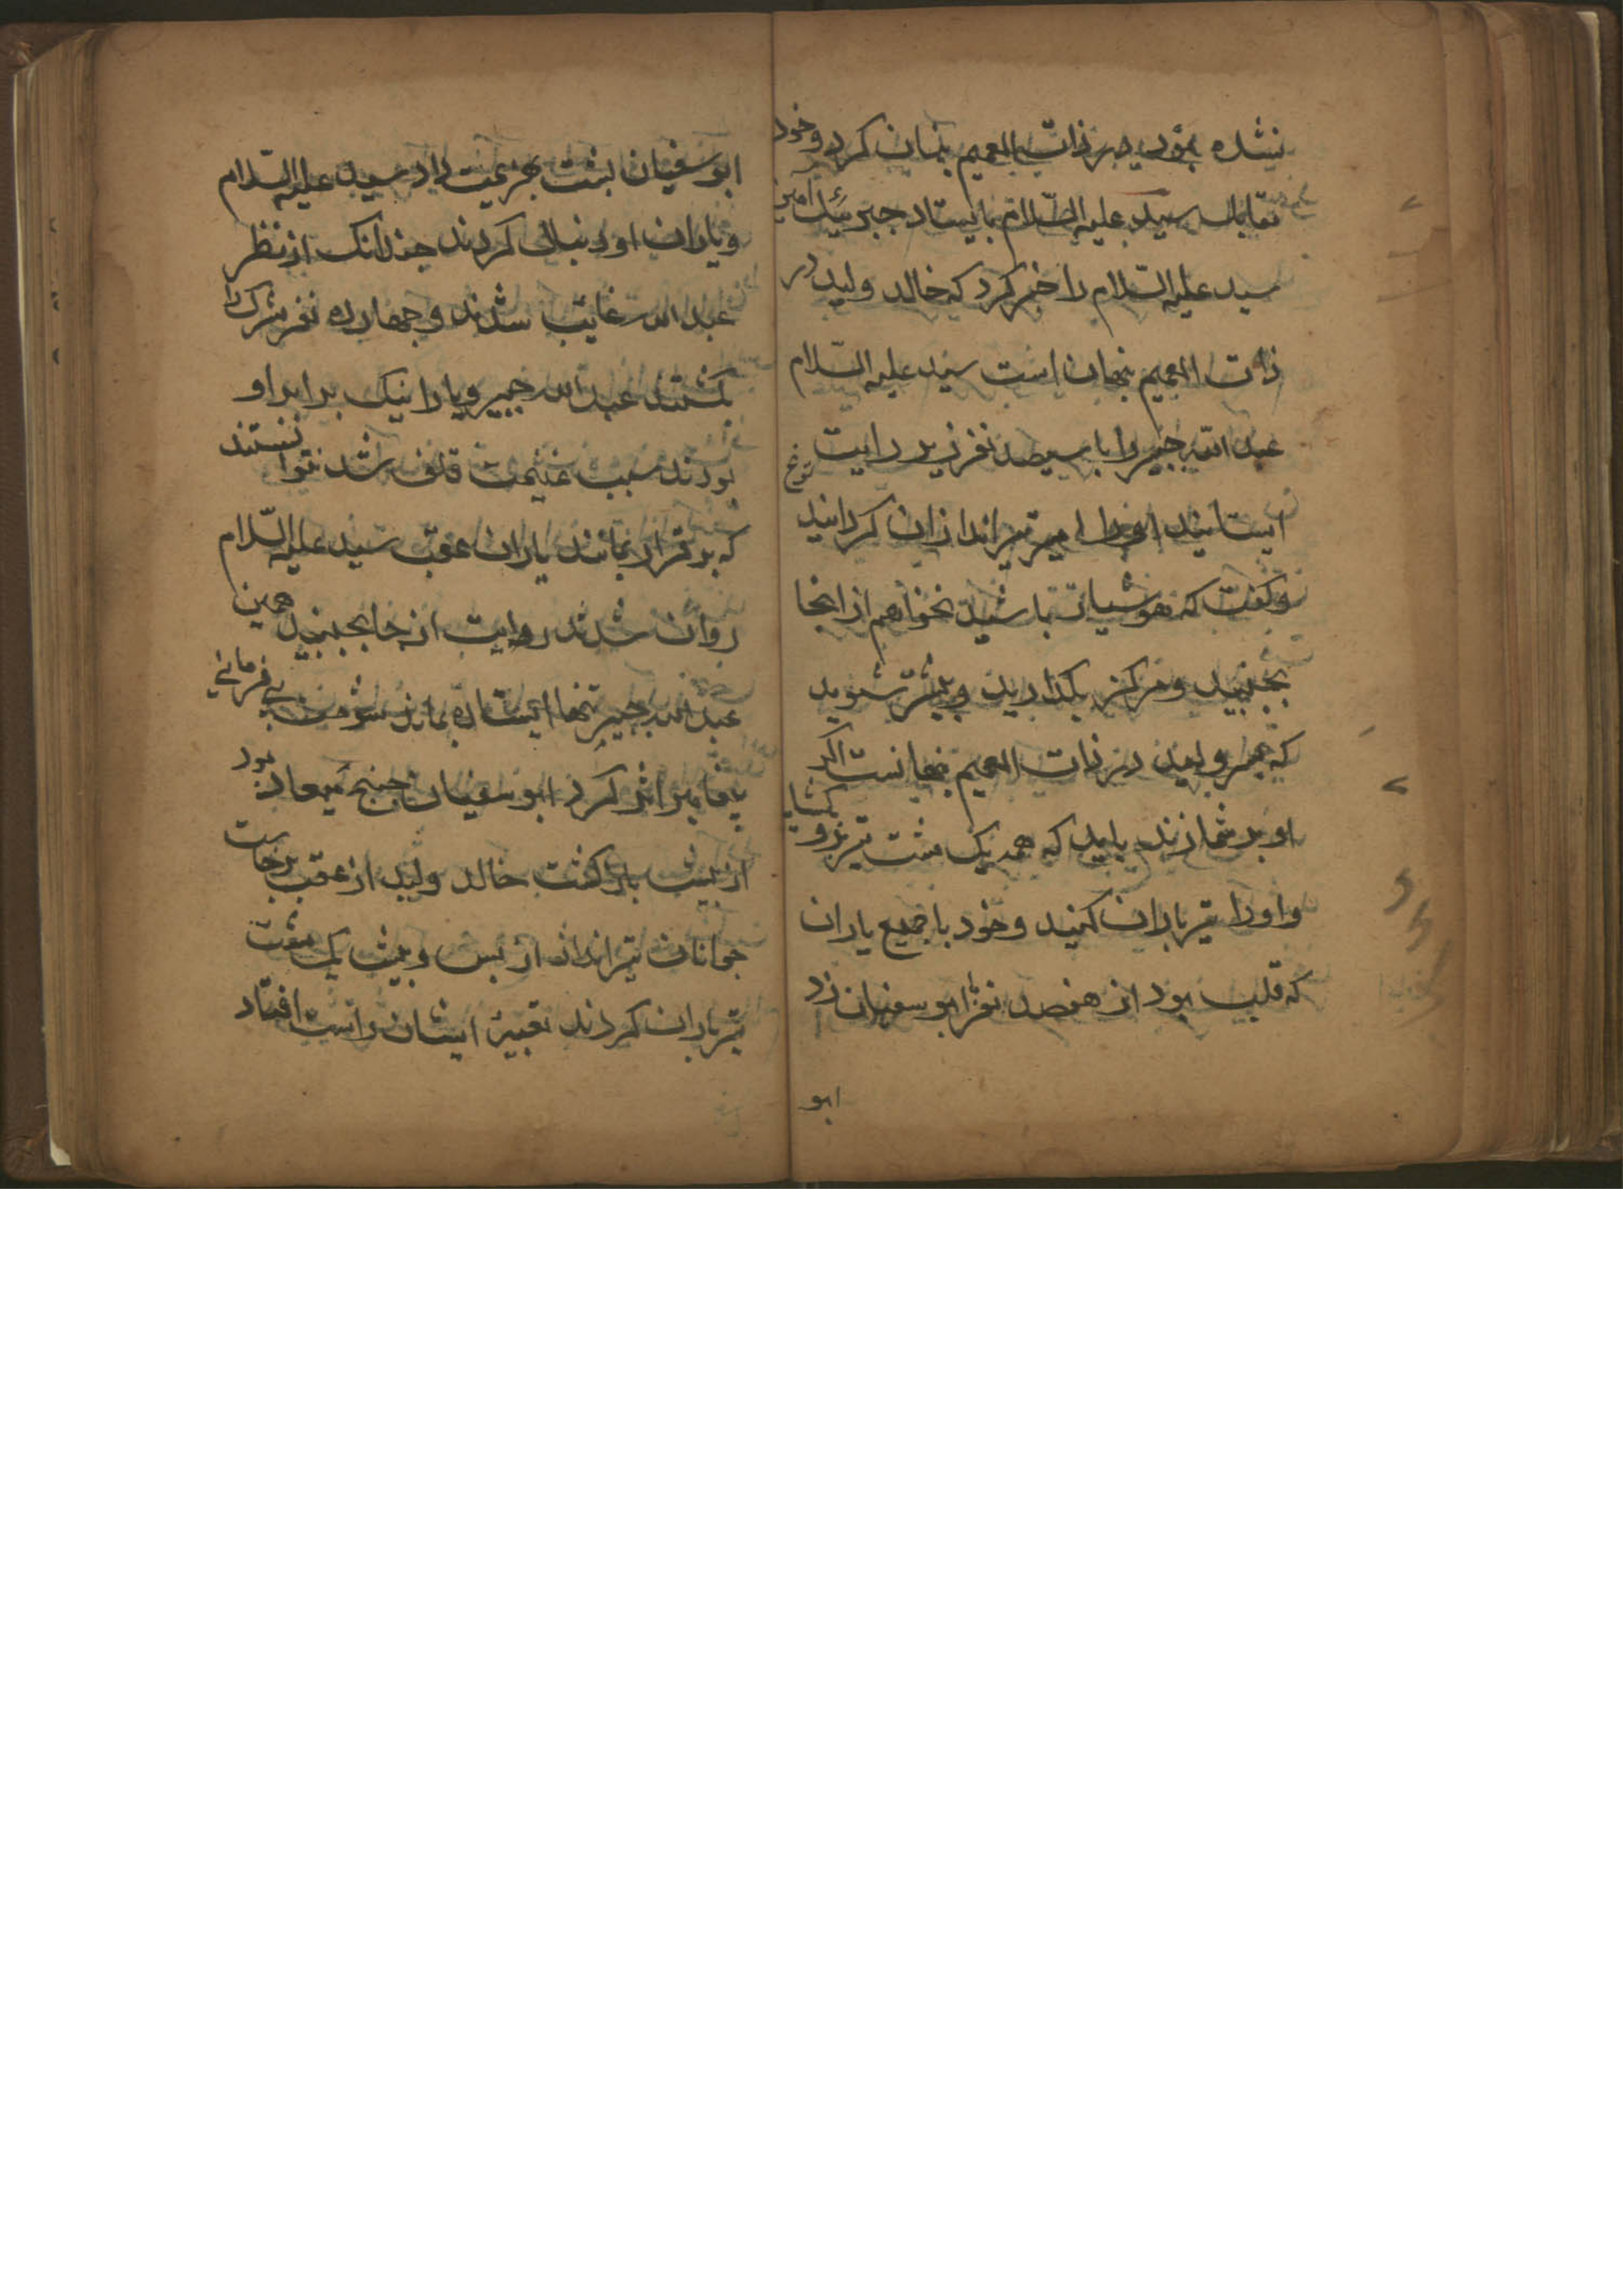 نشده بود در ذات العمیم پنهان کرد و خود
مقابل سید علیه السّلام بایستاد جبرئیل امین
سید علیه السّلام را خبر کرد که خالد ولید در
ذات العمیم پنهان است سید علیه السّلام
عبد الله جبیر را با سیصد نفر زیر رایت
ایستانید میر تیر اندازان کردانید
و کفت که هوشیار باشید نخواهم از اینجا
بجنبید و مرکز بکذارید و پیشتر شوید
که ولید در ذات العمیم پنهانست اکر
او بر شما زند باید که همه یک مشت تیر بکشاید
و او را تیر باران کنید و خود با جمیع یاران
که قلب بود از هفصد نفر ابو سفیان زد
ابو
ابو سفیان پشت بهزیمت داد سید علیه السّلام
و یاران او دنبال کردند چندانک از نظر
عبد الله غایب شدند و چهارده نفر مشرک را
بکشتند عبد الله جبیر و یارانیک برابر او
بودند سبب غنیمت شد نتوانستند
که بر قرار بمانند یاران عقب سید علیه السّلام
روان شدند رایت از جا بجنبید همین
عبد الله جبیر تنها ایستاده بماند شومت بی فرمانی
پیغامبر اثر کرد ابو سفیان میعاد بود
از پیش باز کشت خالد ولید از عقب برخاست
جوانان تیرانداز از پس و پیش یک مشت
تیر باران کردند تعبیۀ ایشان راست افتاد